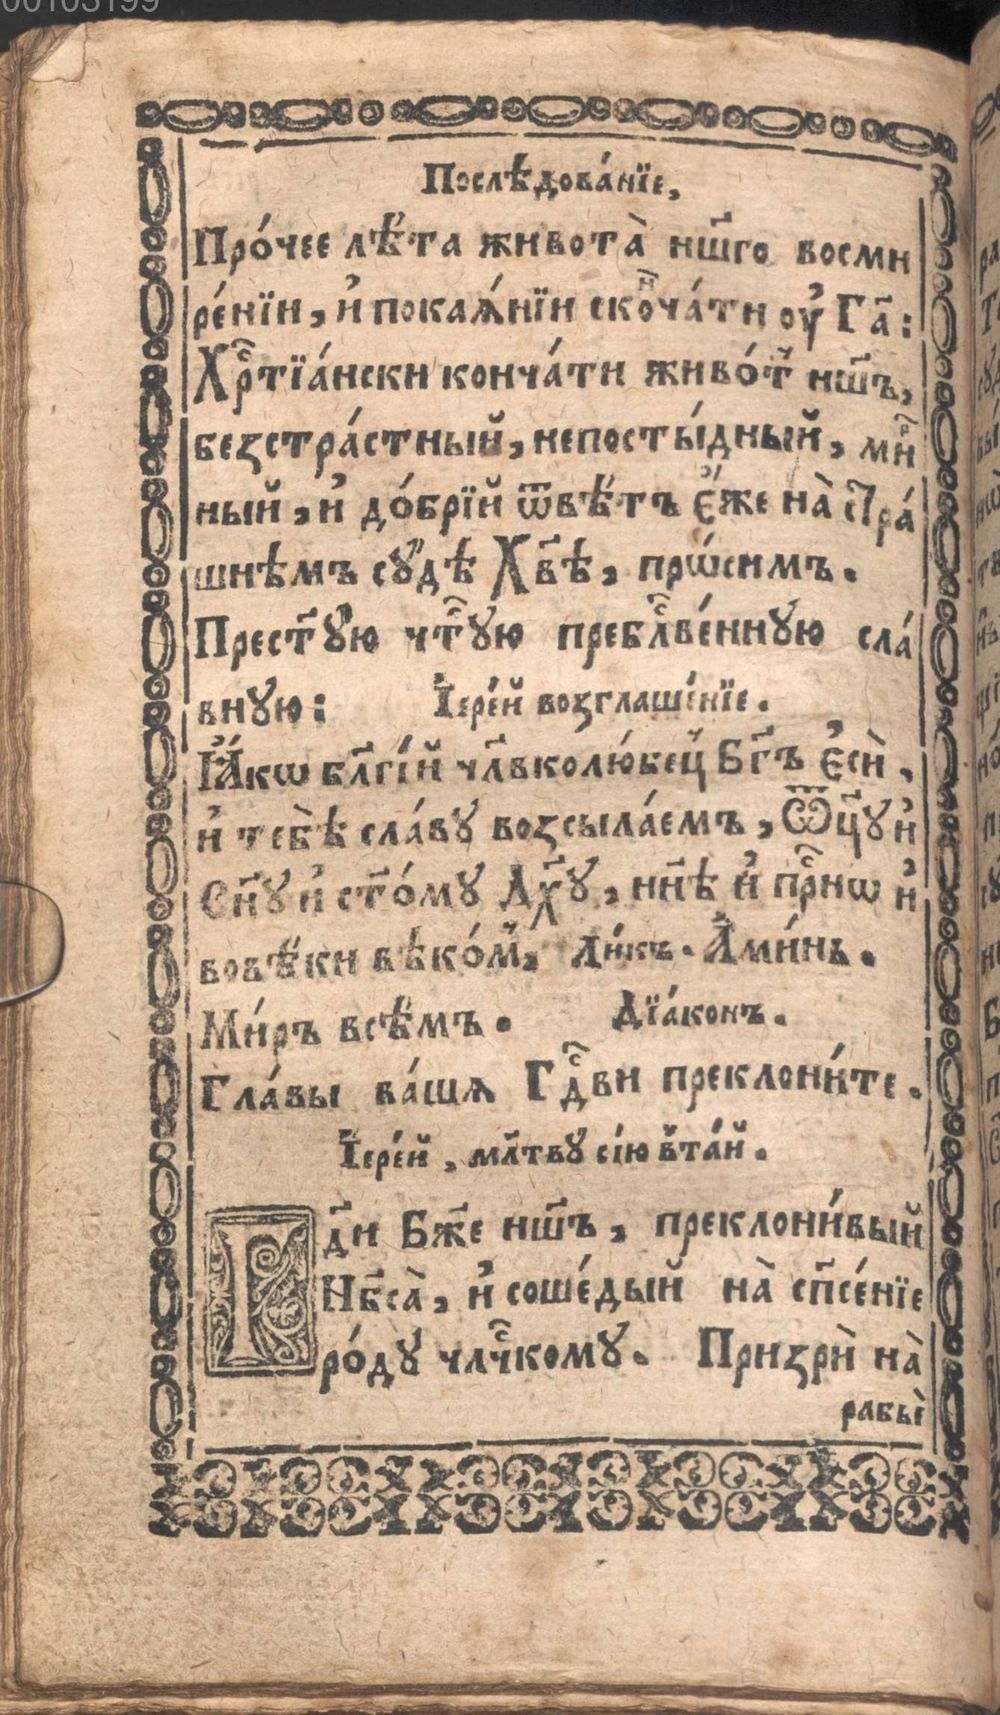 00103199
Послѣ́дова́нїе,
Про́чее лѣ́та живота̀ нш҃го восми
ре́нїи, и҆ покаѧ́нїи скоⷩ҇ча́ти оу҆ Га҃:
Хрⷭ҇тїа́нски конча́ти живо́тъ нш҃ъ,
беꙁстра́стный, непосты́дный, миⷬ҇
ный, и҆ до́брїй ѿвѣ́тъ є҆́же на̀ стра́
шнѣмъ сꙋдѣ̀ Хв҃ѣ, прѡ́симъ.
Прест҃ꙋ́ю чⷭ҇тꙋю пребл҃ве́ннꙋю сла́
внꙋю: І҆ере́й воꙁглаше́нїе.
Ꙗ҆́кѡ бл҃гі́й чл҃вколю́бец Бг҃ъ є҆сѝ,
и҆ тебѣ̀ сла́вꙋ воꙁсыла́емъ, Ѿц҃ꙋ и҆
Сн҃ꙋ и҆ ст҃о́мꙋ Дх҃ꙋ, нн҃ѣ и҆ прⷭ҇нѡ и҆
вовѣ́ки вѣко́м, Ли́къ. А҆ми́нь.
Ми́ръ всѣ́мъ. Дїа́конъ.
Гла́вы ва́шѧ Гдⷭ҇ви преклони́те.
І҆ере́й, мл҃твꙋ сію̀ в̾та́й.
Гд҃и Бж҃е нш҃ъ, преклони́вый
Нб҃са̀, и҆ соше́дый на̀ сп҃се́нїе
ро́дꙋ члчⷭ҇комꙋ. Приꙁрѝ на̀
рабы̀